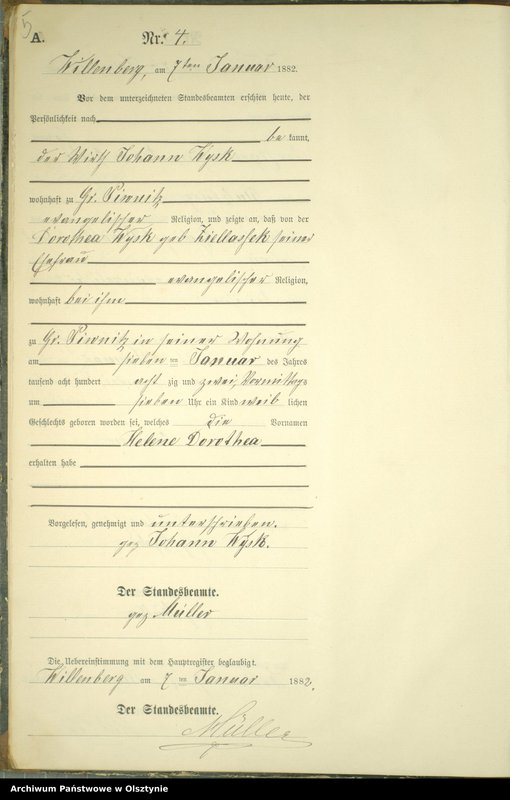 5
A. Nr. 4.
Willenberg, am 7ten Januar 1882.
Vor dem unterzeichneten Standesbeamten erschien heute, der
Persönlichkeit nach
be kannt,
der Wirth Johann Kysk
wohnhaft zu Gr. Piwnitz
evangelischer Religion, und zeigte an, daß von der
Dorothea Kysk geb seiner
Ehefrau
evangelischer Religion,
wohnhaft bei ihm
zu Gr. Piwnitz in seiner Wohnung
am sieben ten Januar des Jahres
tausend acht hundert acht zig und zwei, Vormittags
um sieben Uhr ein Kind weib lichen
Geschlechts geboren worden sei, welches die Vornamen
Helene Dorothea
erhalten habe
Vorgelesen, genehmigt und unterschrieben.
gez Johann Kysk.
Der Standesbeamte.
gez Müller
Die Uebereinstimmung mit dem Hauptregister beglaubigt.
Willenberg am 7 ten Januar 1882.
Der Standesbeamte.
Müller
Archiwum Państwowe w Olsztynie